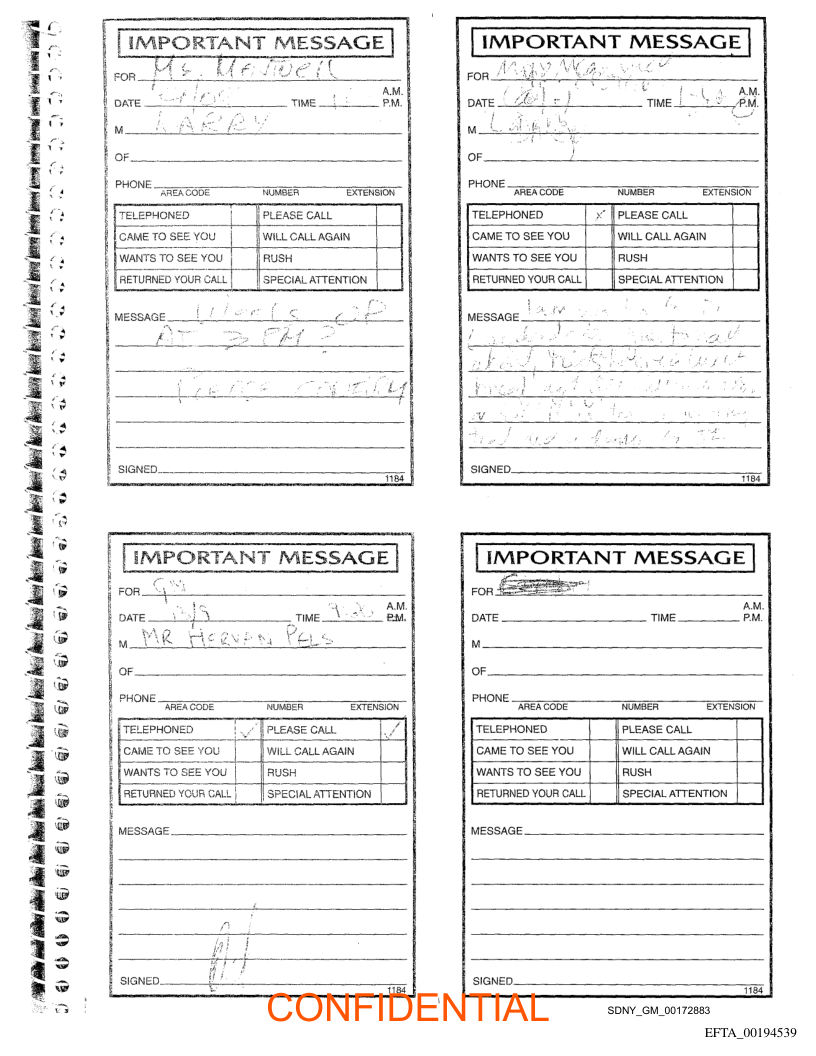 IMPORTANT MESSAGE
FOR Ms. Maxwell
DATE TIME A.M.
P.M.
M LARRY
OF
PHONE
AREA CODE NUMBER EXTENSION
TELEPHONED PLEASE CALL
CAME TO SEE YOU WILL CALL AGAIN
WANTS TO SEE YOU RUSH
RETURNED YOUR CALL SPECIAL ATTENTION
MESSAGE Wheels UP
AT 2 PM?
PLEASE CONFIRM
SIGNED
1184
IMPORTANT MESSAGE
FOR
DATE TIME 1-40 A.M.
P.M.
M Larry
OF
PHONE
AREA CODE NUMBER EXTENSION
TELEPHONED PLEASE CALL
CAME TO SEE YOU WILL CALL AGAIN
WANTS TO SEE YOU RUSH
RETURNED YOUR CALL SPECIAL ATTENTION
MESSAGE
SIGNED
1184
IMPORTANT MESSAGE
FOR GM
DATE 13/9 TIME 9.20 A.M.
P.M.
M MR HERVAN PELS
OF
PHONE
AREA CODE NUMBER EXTENSION
TELEPHONED PLEASE CALL
CAME TO SEE YOU WILL CALL AGAIN
WANTS TO SEE YOU RUSH
RETURNED YOUR CALL SPECIAL ATTENTION
MESSAGE
SIGNED
1184
IMPORTANT MESSAGE
FOR
DATE TIME A.M.
P.M.
M
OF
PHONE
AREA CODE NUMBER EXTENSION
TELEPHONED PLEASE CALL
CAME TO SEE YOU WILL CALL AGAIN
WANTS TO SEE YOU RUSH
RETURNED YOUR CALL SPECIAL ATTENTION
MESSAGE
SIGNED
1184
CONFIDENTIAL
SDNY_GM_00172883
EFTA_00194539